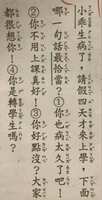 小乘生病了，請假四天才來上學，下面
哪一句話最恰當？①你也病太久了吧！
②你不用上課真好！③你好點沒？大家
都很想你！④你是轉學生嗎？